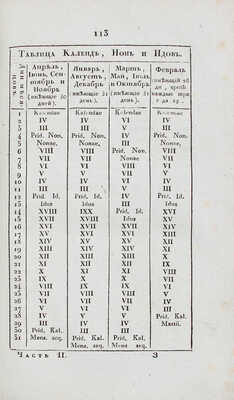 113
ТАБЛИЦА КАЛЕНДЪ, НОНЪ И ИДОВЪ.
Апрѣль, Январь, Мартъ, Февраль
Іюнь, Сен- Августъ, Май, Іюль
тябрь и Декабрь и Октябрь
Ноябрь (имѣющіе 31 (имѣющіе 31
(имѣющіе 30 день). день).
дней).
1 Kalendae Kalendae Kalendae Kalendae
2 IV IV VI IV
3 III III V III
4 Prid. Non. Prid. Non. IV Prid. Non.
5 Nonae. Nonae. III Nonae.
6 VIII VIII Prid. Non. VIII
7 VII VII Nonae VII
8 VI VI VIII VI
9 V V VII V
10 IV IV VI IV
11 III III V III
12 Prid. Id. Prid. Id. IV Prid. Id.
13 Idus Idus III Idus
14 XVIII IXX Prid. Id. XVI
15 XVII XVIII Idus XV
16 XVI XVII XVII XIV
17 XV XVI XVI XIII
18 XIV XV XV XII
19 XIII XIV XIV XI
20 XII XIII XIII X
21 XI XII XII IX
22 X XI XI VIII
23 IX X X VII
24 VIII IX IX VI
25 VII VIII VIII V
26 VI VII VII IV
27 V VI VI III
28 IV V V Prid. Kal.
29 III IV IV Martii.
30 Prid. Kal. III III
31 Mens. seq. Prid. Kal. Prid. Kal.
Mens. seq. Mens. seq.
ЧАСТЬ II. 3